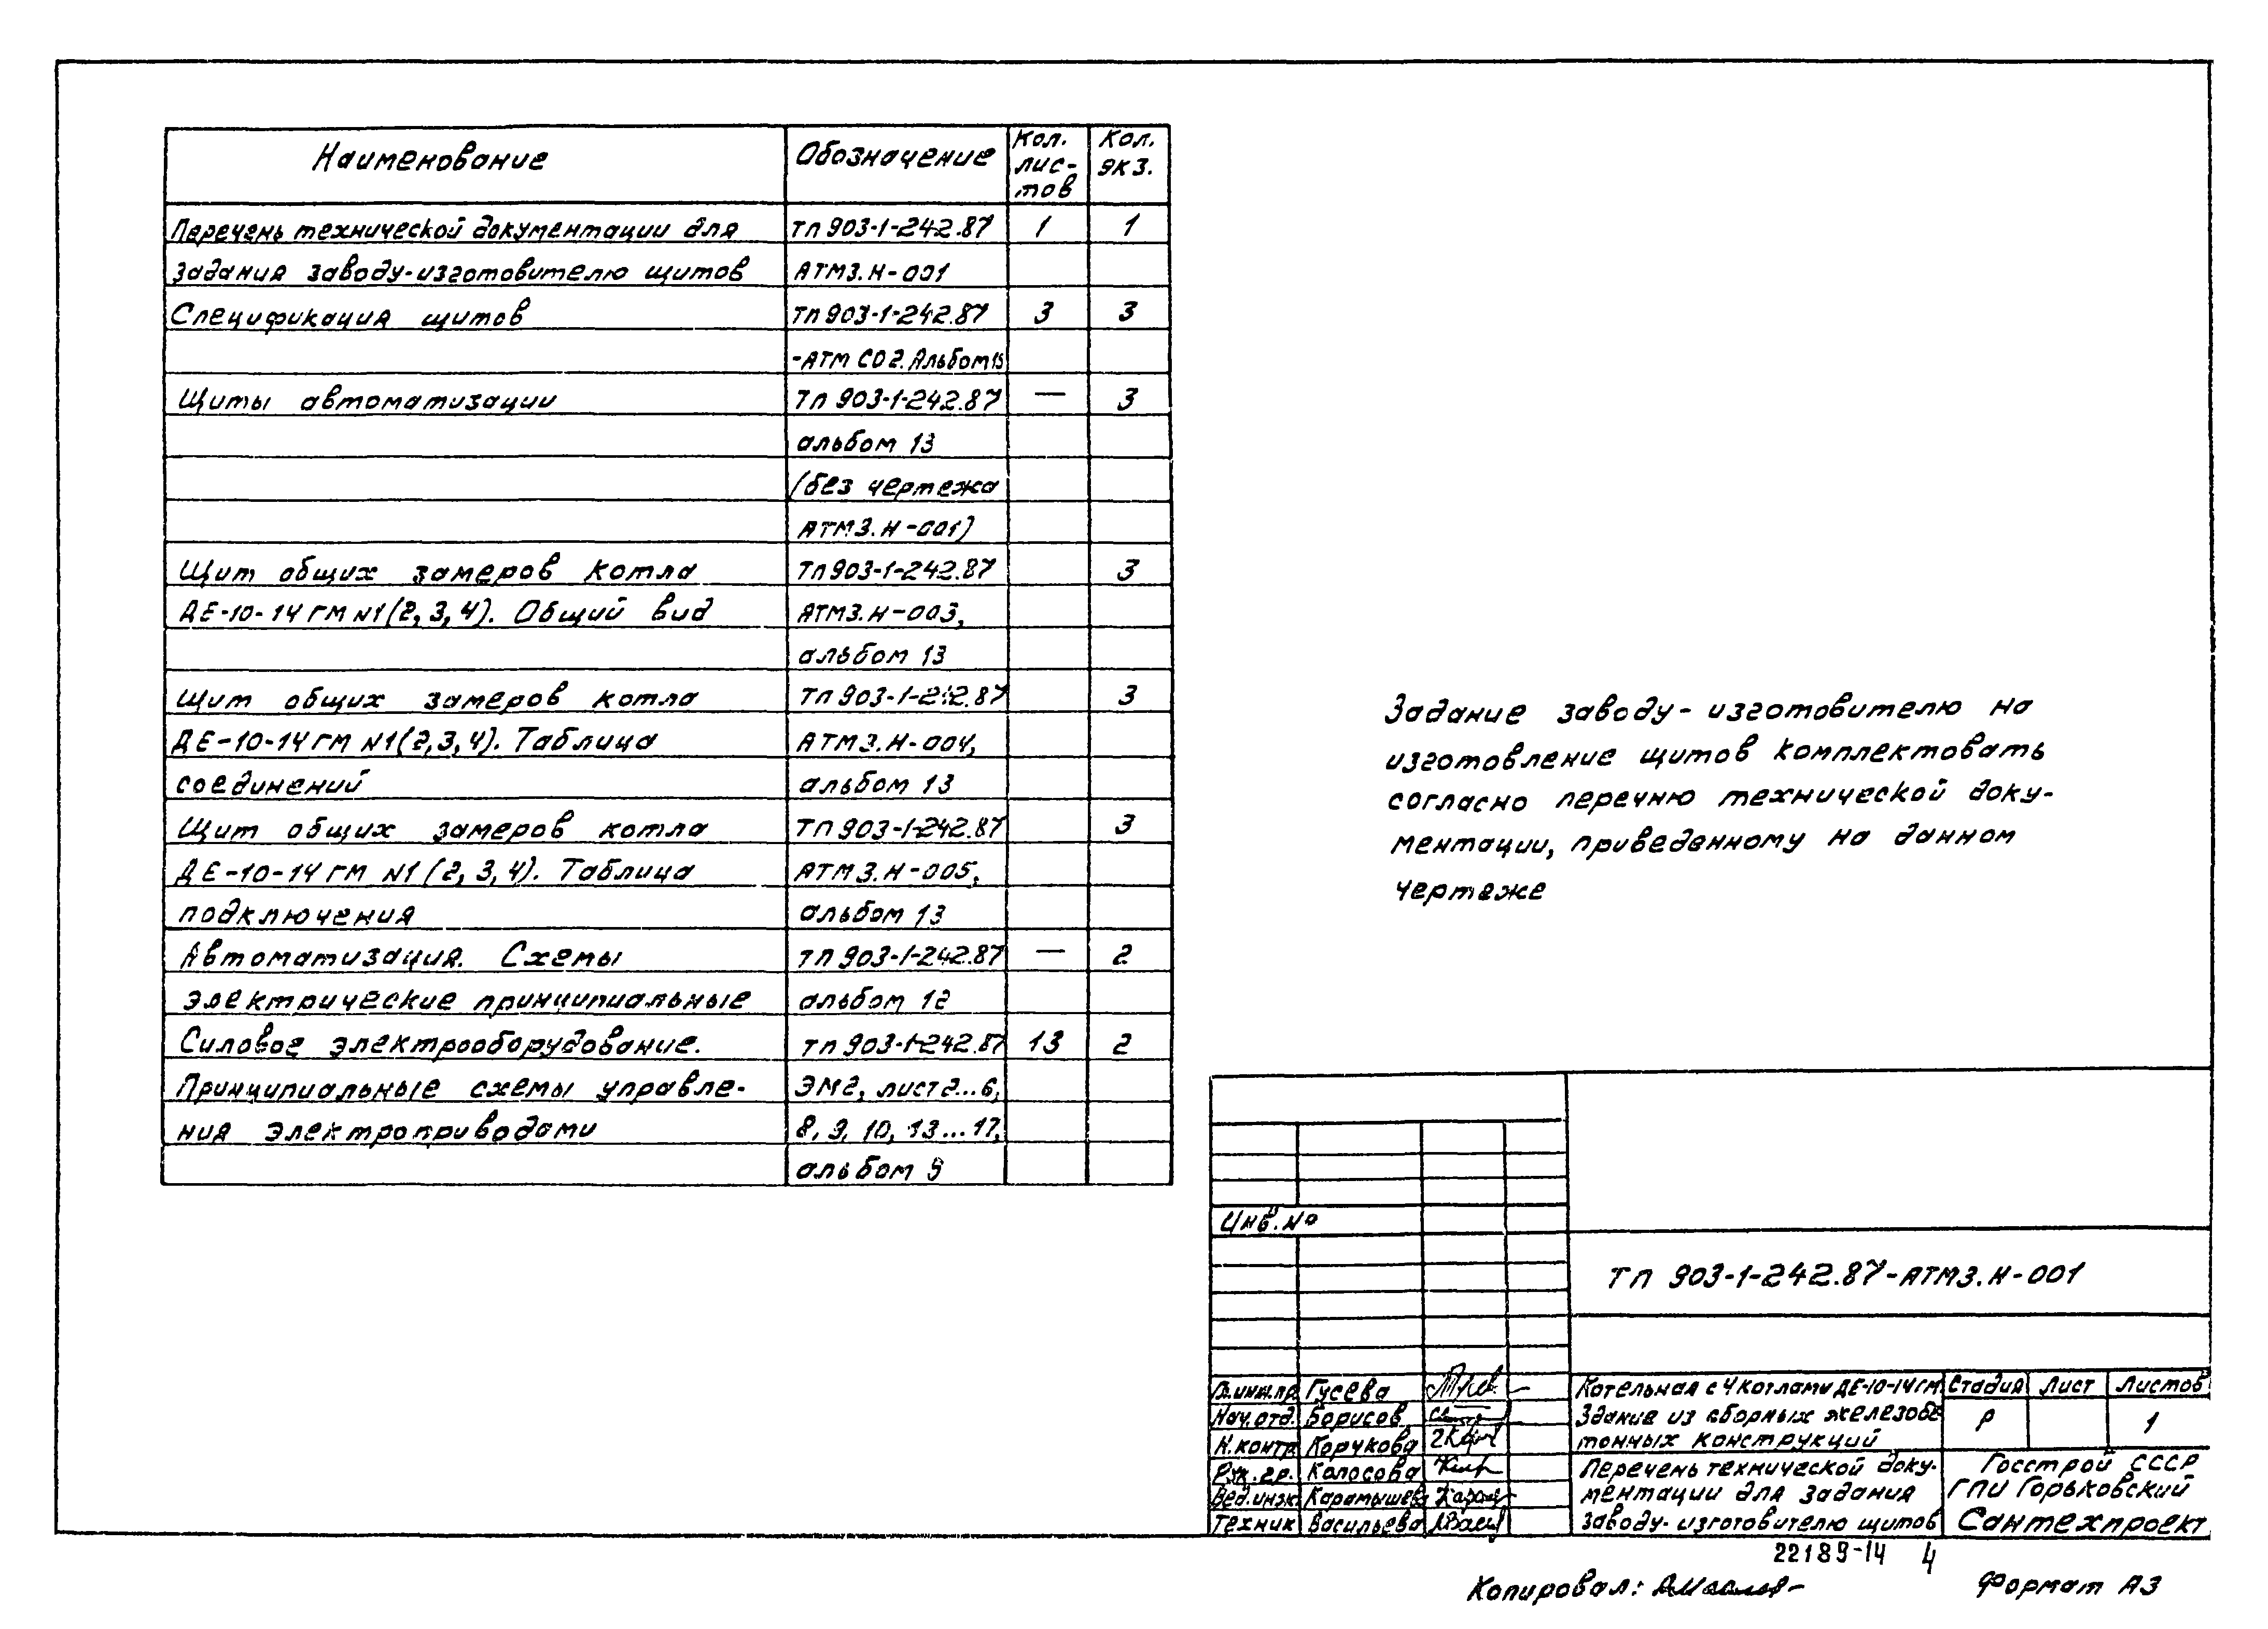 Наименование Обозначение Кол. лис-тов Кол. экз.
Перечень технической документации для ТП 903-1-242.87 1 1
задания заводу-изготовителю щитов АТМ3.Н-001
Спецификация щитов ТП 903-1-242.87 3 3
-АТМ СО2. Альбом 15
Щиты автоматизации ТП 903-1-242.87 — 3
альбом 13
(без чертежа
АТМ3.Н-001)
Щит общих замеров котла ТП 903-1-242.87 3
ДЕ-10-14ГМ №1(2,3,4). Общий вид АТМ3.Н-003,
альбом 13
Щит общих замеров котла ТП 903-1-242.87 3
ДЕ-10-14ГМ №1(2,3,4). Таблица АТМ3.Н-004,
соединений альбом 13
Щит общих замеров котла ТП 903-1-242.87 3
ДЕ-10-14ГМ №1(2,3,4). Таблица АТМ3.Н-005,
подключения альбом 13
Автоматизация. Схемы ТП 903-1-242.87 — 2
электрические принципиальные альбом 12
Силовое электрооборудование. ТП 903-1-242.87 13 2
Принципиальные схемы управле- ЭМ2, лист 2...6,
ния электроприводами 8, 9, 10, 13...17,
альбом 9
Задание заводу-изготовителю на
изготовление щитов комплектовать
согласно перечню технической доку-
ментации, приведенному на данном
чертеже
Инв. №
ТП 903-1-242.87-АТМ3.Н-001
Гл.инж.пр. Гусева
Нач.отд. Борисов
Н.контр. Корчкова
Рук.гр. Колосова
Вед.инж. Карамышева
Техник Васильева
Котельная с 4 котлами ДЕ-10-14ГМ
Здание из сборных железобе
тонных конструкций
Стадия Лист Листов
Р 1
Перечень технической доку-
ментации для задания
заводу-изготовителю щитов
Госстрой СССР
ГПИ Горьковский
Сантехпроект
22189-14 4
Копировал:
Формат А3